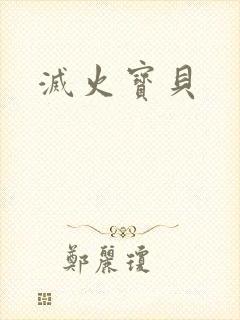 滅火寶貝
鄭麗瓊